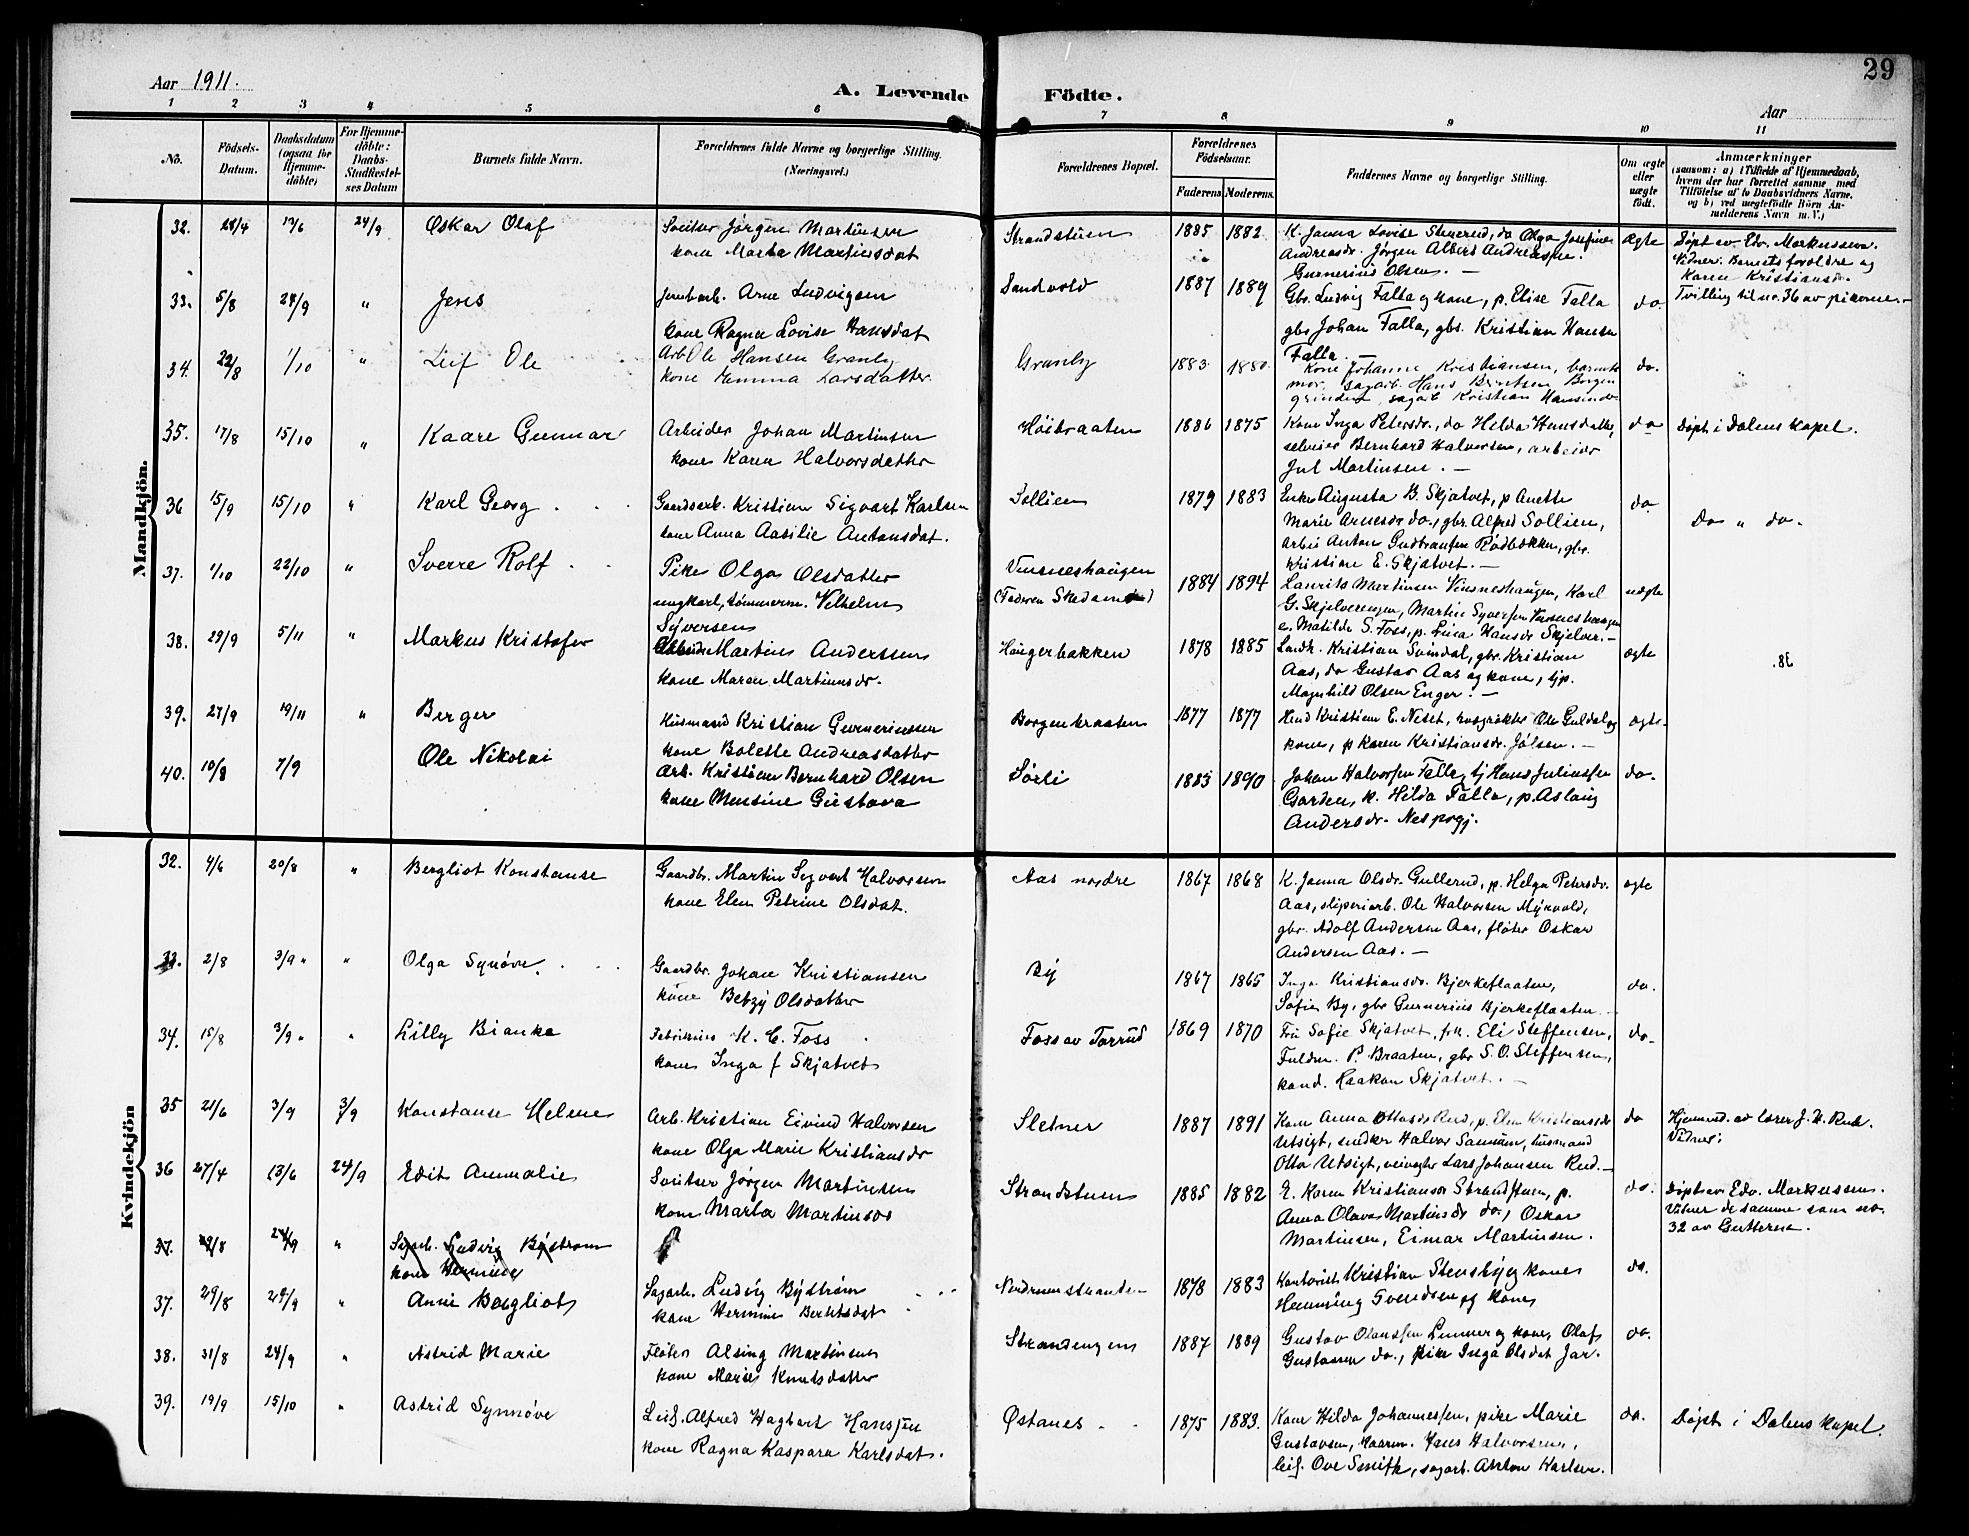 Aar 1911.
A. Levende Födte.
29
Aar
1 2 3 4 5 6 7 8 9 10 11
No.
Födsels-Datum.
Daabsdatum (ogsaa for Hjemmedöbte)
For Hjemmedöbte: Daabs-Stadfæstelses Datum
Barnets fulde Navn.
Forældrenes fulde Navne og borgerlige Stilling.
(Næringsvei.)
Forældrenes Bopæl.
Forældrenes Födselsaar.
Faderens. Moderens.
Faddernes Navne og borgerlige Stilling.
Om ægte eller uægte födt.
Anmærkninger
(saasom: a) i Tilfælde af Hjemmedaab, hvem der har forrettet samme med Tilföielse af to Daabsvidners Navne, og b) ved uægtefödte Börn Anmelderens Navn m. V.)
Mandkjön.
32. 28/4 13/6 24/9 Oskar Olaf Sveitser Jørgen Martinsen Strandstuen 1885 1882 K. Janna Lovise Stenerud, do Olga Josefine ægte Døpt av Edv. Markussen.
kone Marta Martinsdat Andreasdr. Jørgen Albert Andreassen. Vidner: Barnets forældre og
Gunerius Olsen. — Karen Kristiansdr.
33. 5/8 24/9 " Jens Jernbarb. Arne Ludvigsen Sandvold 1887 1889 Gbr. Ludvig Falla og kone, p. Elise Falla do. Tvilling til no. 36 av pikerne.-
kone Ragna Lovise Hansdat gbr Johan Falla, gbr. Kristian Hansen
Falla. —
34. 22/8 1/10 " Leif Ole Arb Ole Hansen Granby Granby 1883 1880 Kone Johanne Kristiansen, barnets do.
kone Emma Larsdatter mor, sagarb. Hans Berntsen Borgen
grinden, sagarb Kristian
35. 17/8 15/10 " Kaare Gunnar Arbeider Johan Martinsen Høibraaten 1886 1875 Kone Inga Petersdr., do Helda Hansdatter, do Døpt i Dalens kapel.
kone Karen Halvorsdatter selveier Bernhard Halvorsen, arbeider
Jul Martinsen. —
36 15/9 15/10 " Karl Georg Gaardbrk. Kristian Sigvart Karlsen Sollien 1879 1883 Enke Augusta B. Skjatvet, p Anette do Do " do.
kone Anna Aasilie Antonsdat. Marie Arnesdr do., gbr. Alfred Sollien,
arbei Anton Gudbrandsen Rødbækken, gbr.
Kristian E. Skjatvet. —
37. 1/10 22/10 " Sverre Rolf Pike Olga Olsdatter Vinsneshaugen 1884 1894 Laurits Martinsen Vinsneshaugen, Karl uægte
ungkarl, tømmerm. Vilhelm (Faderen Skedsmo) G. Skjelverengen, Martin Syversen Vinsneshaugen
Syversen e. Matilde S. Foss, p. Lina Hansdr Skjelver. —
38. 29/9 5/11 " Markus Kristofer Arbeider Martins Andersen Haugerbakken 1878 1885 Landh. Kristian Svindal, gbr. Kristian ægte
kone Maren Martinusdr. Aas, do Gustav Aas og kone, tjp.
Magnhild Olsen Enger. —
39. 27/9 19/11 " Berger Husmand Kristian Gunneriussen Borgenbraaten 1877 1877 Hmd Kristian E. Neset, husgrækter Ole Guldal og ægte.
kone Bolette Andreasdatter kone, p Karen Kristiansdr. Jølsen. —
40. 10/8 7/9 Ole Nikolai Arb. Kristian Bernhard Olsen Sørli 1883 1890 Johan Halvorsen Falla, tj Hans Juliussen do.
kone Massine Gustava Garden, k. Hilda Falla, p. Aslaug
Andersdr. Nesprgj.
Kvindekjön
32. 4/6 20/8 " Bergliot Konstanse Gaardbr. Martin Sigvart Halvorsen Aas nordre 1867 1868 K. Janna Olsdr. Gullerud, p. Helga Petersdr. ægte
kone Elen Petrine Olsdat. Aas, sliperiarb. Ole Halvorsen Myrvold,
gbr. Adolf Andersen Aas, fløter Oskar
Andersen Aas. —
33. 2/8 3/9 " " Olga Synøve Gaardbr. Johan Kristiansen By 1867 1865 Inga Kristiansdr. Bjerkeflaaten, do.
kone Betzy Olsdatter Sofie By, gbr Gunerius Bjerkeflaaten
34. 15/8 3/9 " " Lilly Bianka Fabrikeier K. C. Foss Foss av Forrud 1869 1870 Fru Sofie Skjatvet, frk. Eli Steffensen, do.
kone Inga f Skjatvet Fuldm. P. Braaten, gbr S. O. Steffensen,
kand. Haakon Skjatvet. —
35 21/6 3/9 3/9 Konstanse Helene Arb. Kristian Eivind Halvorsen Sletner 1887 1891 Kone Anna Ottosdr Rud, p. Elen Kristiansdr do Hjemmed. av lærer J. H. Rud.
kone Olga Marie Kristiansdr Utsigt, snekker Halvor Sannum, husmand Vidner:
Otto Utsigt, veivogter Lars Johansen Rud. —
36 27/4 13/6 24/9 Edit Ammalie Sveitser Jørgen Martinsen Strandstuen 1885 1882 E. Karen Kristiansdr Strandstuen, p. do. Døpt av Edv. Markussen.
kone Marta Martinsdr Anna Olava Martinsdr do., Oskar Vidner de samme som no.
Martinsen, Eimar Martinsen. 32 av Gutterne.
37. 29/8 24/9 " Sagarb. Ludvig Bystrøm
kone Hermine
37. 29/8 24/9 " Anne Bergliot Sagarb. Ludvig Bystrøm Nordrumstranden 1878 1883 Kontorist Kristian Stensby og kone do.
kone Hermine Berntsdat Hemming Svendsen og kone
38. 31/8 24/9 " Astrid Marie Fløter Alsing Martinsen Strandengen 1887 1889 Gustav Olaussen Lunner og kone, Olaf do.
kone Marie Knutsdatter Gustavsen do., pike Inga Olsdat Jar.
39. 19/9 15/10 " Astrid Synnøve Leil. Alfred Hagbart Hanssen Østanes 1875 1883. Kone Hilda Johannessen, pike Marie do. Døpt i Dalens kapel.
kone Ragna Kaspara Karlsdat. Gustavsen, Hans Halvorsen,
leil. Ove Smith, sagarb. Anton Karlsen.